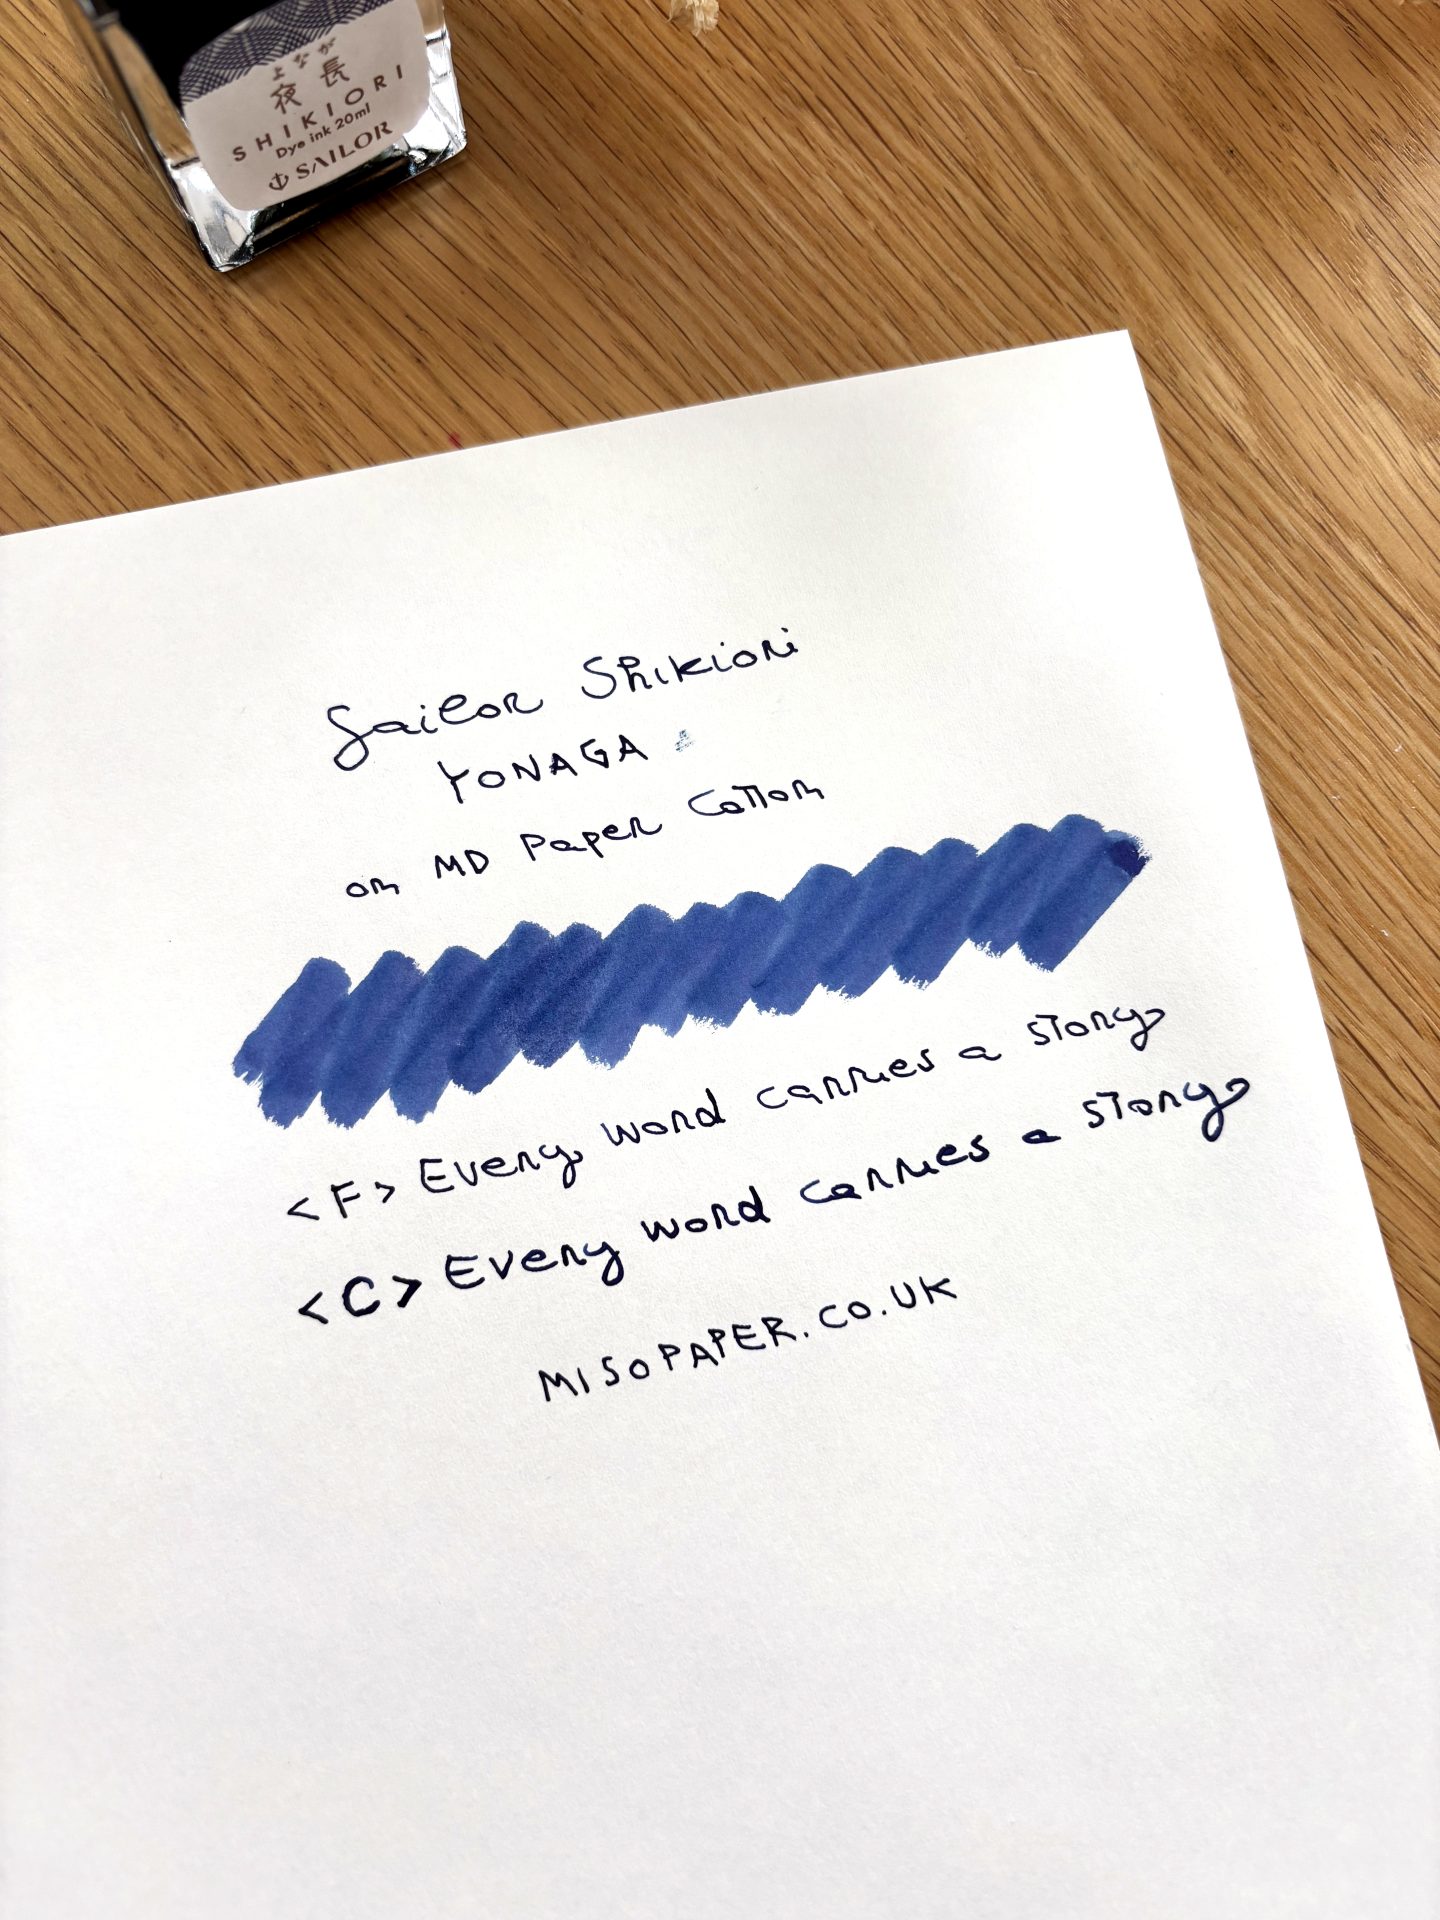 よなが
夜長
SHIKIORI
Dye ink 20ml
SAILOR
Sailor Shikiori
YONAGA
on MD Paper Cotton
<F> Every word carries a story
<C> Every word carries a story
MISOPAPER.CO.UK